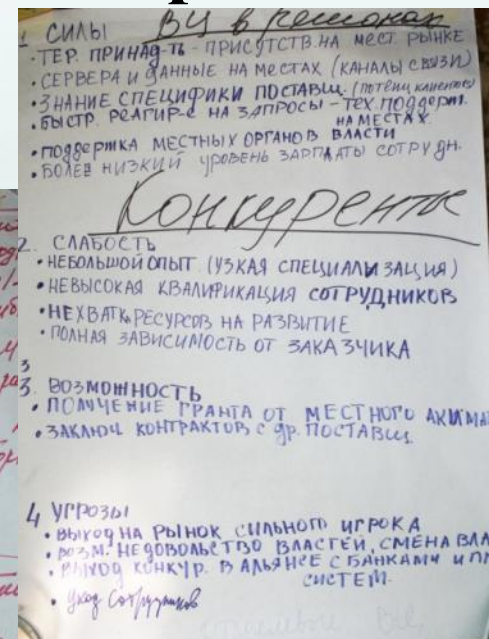 ВЦ в регионах
1 СИЛЫ
• ТЕР. ПРИНАД-ТЬ - ПРИСУТСТВ. НА МЕСТ. РЫНКЕ
• СЕРВЕРА И ДАННЫЕ НА МЕСТАХ (КАНАЛЫ СВЯЗИ)
• ЗНАНИЕ СПЕЦИФИКИ ПОСТАВЩ. (ПОТЕНЦ КЛИЕНТОВ)
• БЫСТР. РЕАГИР-Е НА ЗАПРОСЫ - ТЕХ. ПОДДЕРЖ.
НА МЕСТАХ.
• ПОДДЕРЖКА МЕСТНЫХ ОРГАНОВ ВЛАСТИ
• БОЛЕЕ НИЗКИЙ УРОВЕНЬ ЗАРПЛАТЫ СОТРУДН.
Конкуренты
2. СЛАБОСТЬ
• НЕБОЛЬШОЙ ОПЫТ. (УЗКАЯ СПЕЦИАЛИЗАЦИЯ)
• НЕВЫСОКАЯ КВАЛИФИКАЦИЯ СОТРУДНИКОВ
• НЕХВАТКА РЕСУРСОВ НА РАЗВИТИЕ
• ПОЛНАЯ ЗАВИСИМОСТЬ ОТ ЗАКАЗЧИКА
3
3. ВОЗМОЖНОСТЬ
• ПОЛУЧЕНИЕ ГРАНТА ОТ МЕСТНОГО АКИМА
• ЗАКЛЮЧ КОНТРАКТОВ С ДР. ПОСТАВЩ
4 УГРОЗЫ
• ВЫХОД НА РЫНОК СИЛЬНОГО ИГРОКА
• ВОЗМ. НЕДОВОЛЬСТВО ВЛАСТЕЙ, СМЕНА ВЛА
• ВЫХОД КОНКУР. В АЛЬЯНСЕ С БАНКАМИ И ПЛ
СИСТЕМ.
• Уход Сотрудников